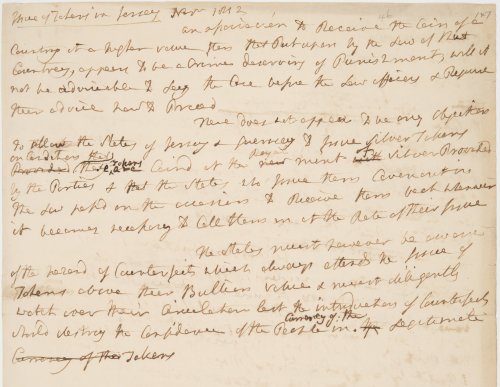 Issue of Tokens in Jersey Novr 1812
an opposition to Receive the Coin of a
Country at a higher value then that Put upon by the Law of that
Country, appears to be a Crime deserving of Punishment, will it
not be adviseable to Lay the Case before the Law officers & Require
their advice how to Proceed
There does not appear to be any Objection
to allow the States of Jersey & Guernsey to Issue Silver Tokens
on Condition that
Provided these Tokens are Coind at the Mint of Silver Provided
by the Parties & that the States who Issue them Covenant in
the Law passd on the occasion to Receive them back whenever
it becomes necessary to Call them in at the Rate of their Issue
The States must however be aware
of the hazard of Counterfeits which always attends the Issue of
Tokens above their Bullion value & must diligently
watch over their Circulation lest the introduction of Counterfeits
should destroy the Confidence of the People in the Currency of the Legitimate
Currency of the Tokens